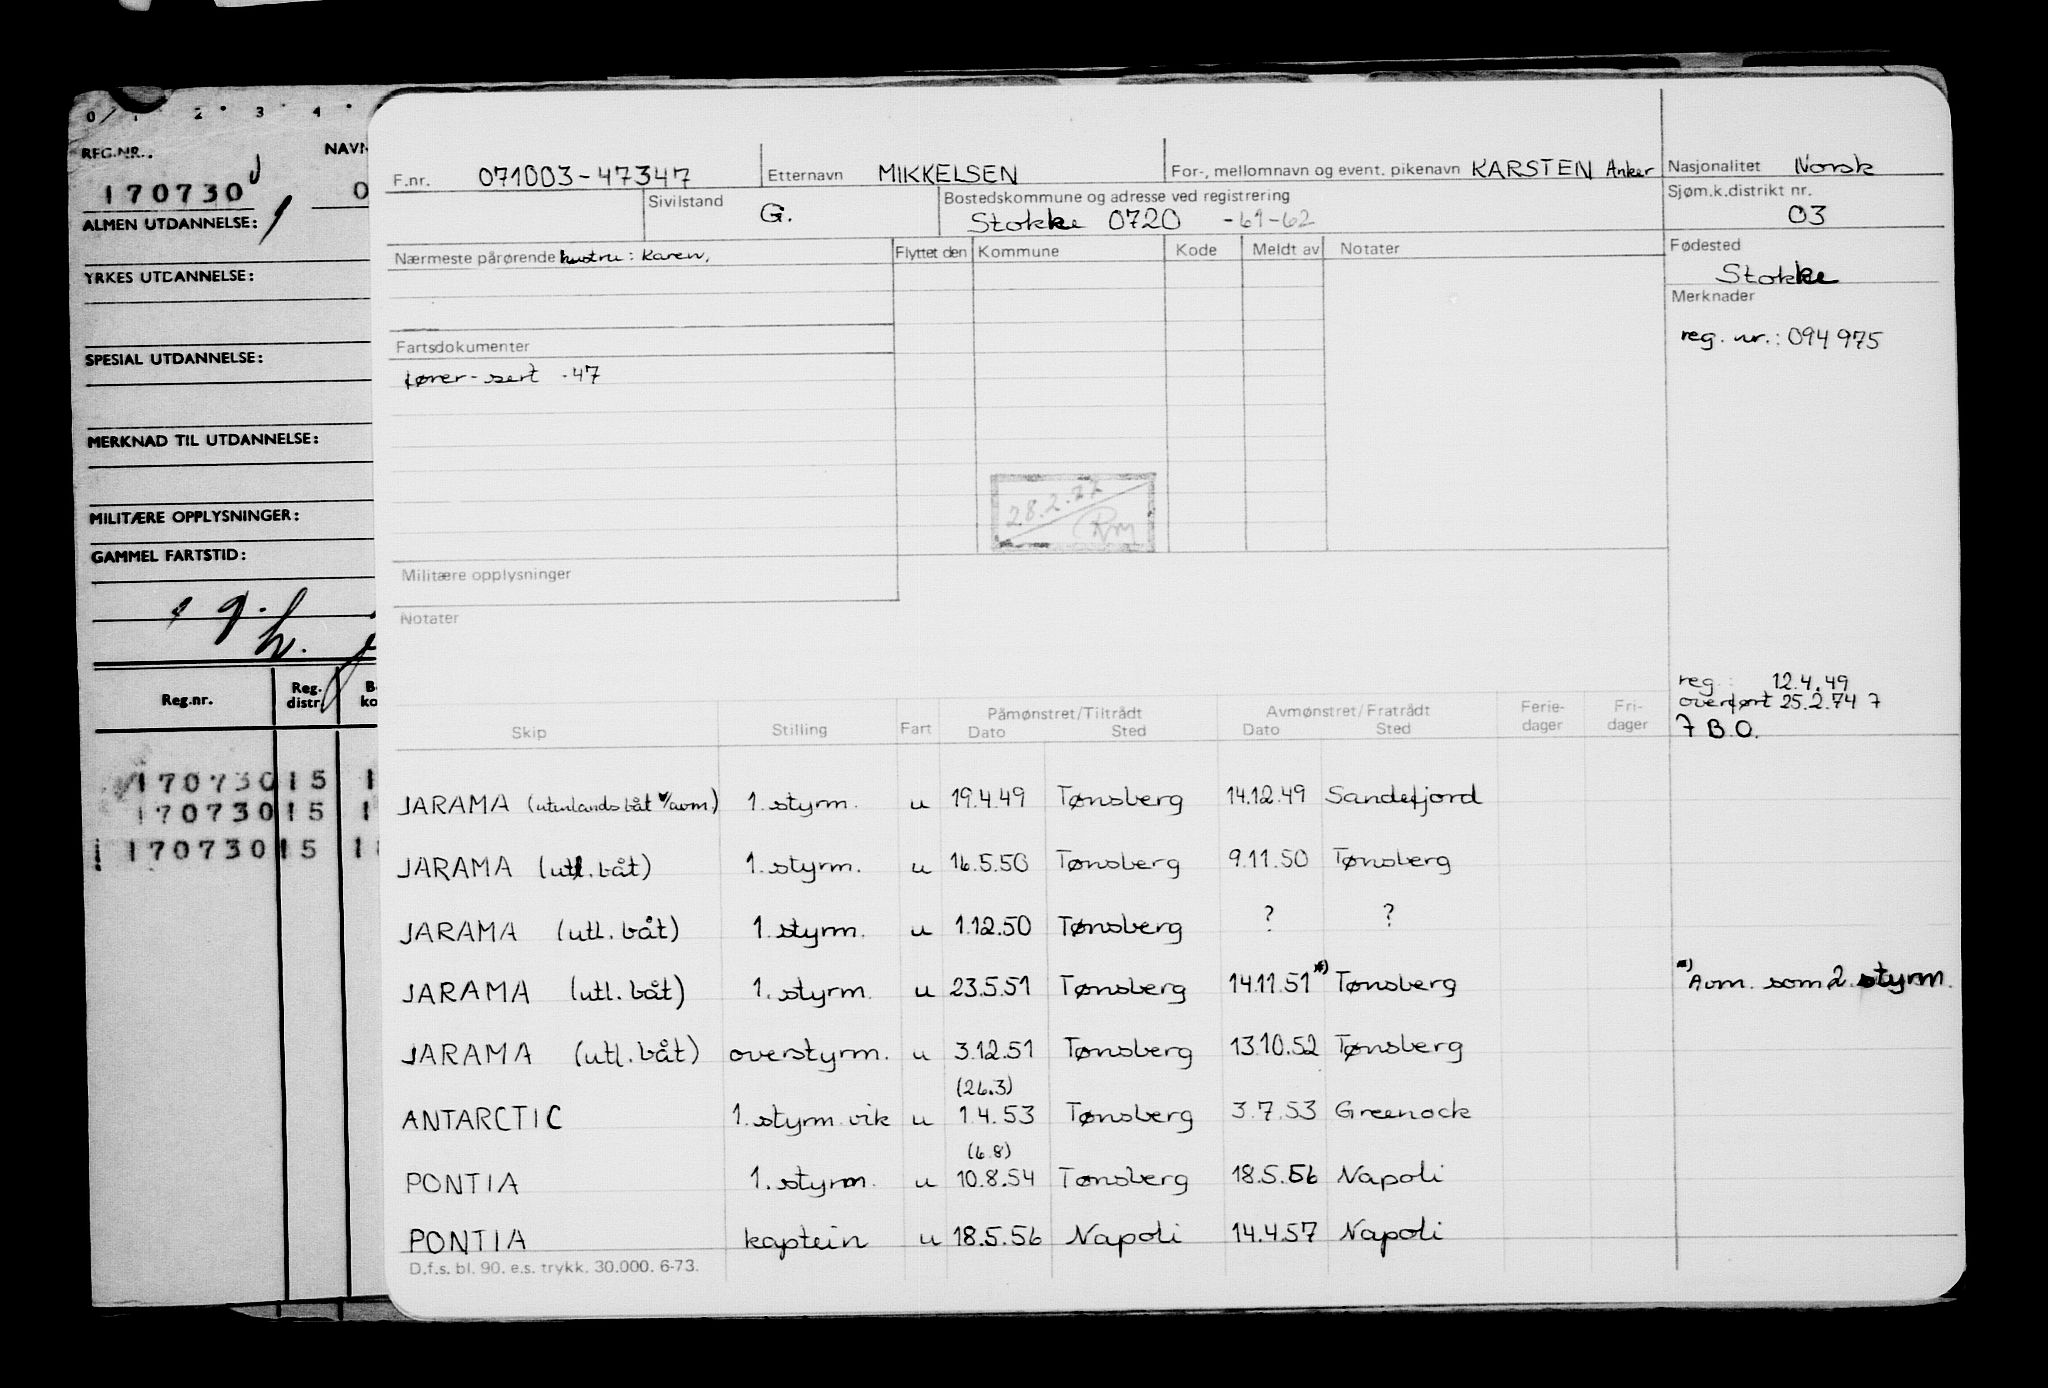 0 1 2 3 4
REG.NR.. NAVN
170730 0
ALMEN UTDANNELSE:
YRKES UTDANNELSE:
SPESIAL UTDANNELSE:
MERKNAD TIL UTDANNELSE:
MILITÆRE OPPLYSNINGER:
GAMMEL FARTSTID:
Reg.nr. Reg. distr.
170730 15 1
170730 15 1
170730 15 1
F.nr. 071003-47347 Etternavn MIKKELSEN For-, mellomnavn og event. pikenavn KARSTEN Anker Nasjonalitet Norsk
Sivilstand G. Bostedskommune og adresse ved registrering Sjøm.k.distrikt nr.
Stokke 0720 -61-62 03
Nærmeste pårørende hustru: Karen, Flyttet den Kommune Kode Meldt av Notater Fødested
Stokke
Merknader
reg. nr.: 094975
Fartsdokumenter
fører-sert -47
28.2.77
Rm
Militære opplysninger
Notater
reg.: 12.4.49
overført 25.2.74 7
7 B.O.
Skip Stilling Fart Påmønstret/Tiltrådt Dato Sted Avmønstret/Fratrådt Dato Sted Ferie-dager Fri-dager
JARAMA (utenlands båt v/avm) 1. styrm. u 19.4.49 Tønsberg 14.12.49 Sandefjord
JARAMA (utl. båt) 1. styrm. u 16.5.50 Tønsberg 9.11.50 Tønsberg
JARAMA (utl. båt) 1. styrm. u 1.12.50 Tønsberg ? ?
JARAMA (utl. båt) 1. styrm. u 23.5.51 Tønsberg 14.11.51 *) Tønsberg *) Avm. som 2. styrm.
JARAMA (utl. båt) overstyrm. u 3.12.51 Tønsberg 13.10.52 Tønsberg
(26.3)
ANTARCTIC 1. styrm. vik u 1.4.53 Tønsberg 3.7.53 Greenock
(6.8)
PONTIA 1. styrm. u 10.8.54 Tønsberg 18.5.56 Napoli
PONTIA kaptein u 18.5.56 Napoli 14.4.57 Napoli
D.f.s. bl. 90. e.s. trykk. 30.000. 6-73.